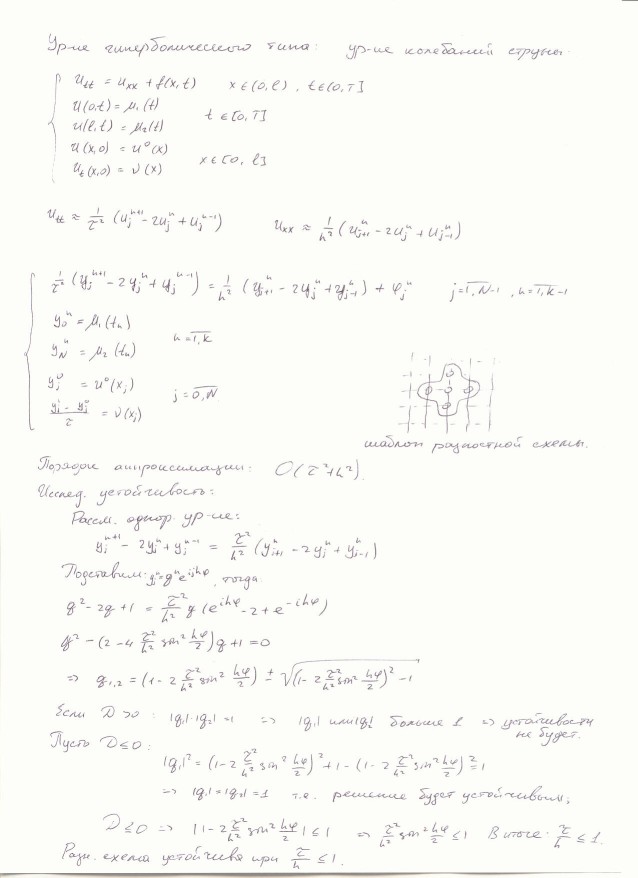 Ур-ие гиперболического типа: ур-ие колебаний струны.
u_tt = u_xx + f(x,t) x∈(0,l), t∈(0,T]
u(0,t) = μ₁(t)
t∈[0,T]
u(l,t) = μ₂(t)
u(x,0) = u⁰(x)
x∈[0,l]
u_t(x,0) = ν(x)
u_tt ≈ 1/τ² (u_j^{n+1} - 2u_j^n + u_j^{n-1}) u_xx ≈ 1/h² (u_{j+1}^n - 2u_j^n + u_{j-1}^n)
1/τ² (y_j^{n+1} - 2y_j^n + y_j^{n-1}) = 1/h² (y_{j+1}^n - 2y_j^n + y_{j-1}^n) + φ_j^n j=1,N-1, n=1,K-1
y_0^n = μ₁(t_n)
n=1,K
y_N^n = μ₂(t_n)
y_j^0 = u⁰(x_j)
j=0,N
(y_j^1 - y_j^0)/τ = ν(x_j)
шаблон разностной схемы.
Порядок аппроксимации: O(τ²+h²).
Исслед. устойчивость:
Рассм. однор. ур-ие:
y_j^{n+1} - 2y_j^n + y_j^{n-1} = τ²/h² (y_{j+1}^n - 2y_j^n + y_{j-1}^n)
Подставим: y_j^n = q^n e^{ijhφ}, тогда
q² - 2q + 1 = τ²/h² q (e^{ihφ} - 2 + e^{-ihφ})
q² - (2 - 4 τ²/h² sin² hφ/2) q + 1 = 0
⇒ q_{1,2} = (1 - 2 τ²/h² sin² hφ/2) ± √((1 - 2 τ²/h² sin² hφ/2)² - 1)
Если D>0: |q₁|·|q₂| = 1 ⇒ |q₁| или |q₂| больше 1 ⇒ устойчивости
не будет.
Пусть D≤0:
|q₁|² = (1 - 2 τ²/h² sin² hφ/2)² + 1 - (1 - 2 τ²/h² sin² hφ/2)² = 1
⇒ |q₁| = |q₂| = 1 т.е. решение будет устойчивым;
D≤0 ⇒ |1 - 2 τ²/h² sin² hφ/2| ≤ 1 ⇒ τ²/h² sin² hφ/2 ≤ 1 В итоге: τ/h ≤ 1.
Разн. схема устойчива при τ/h ≤ 1.